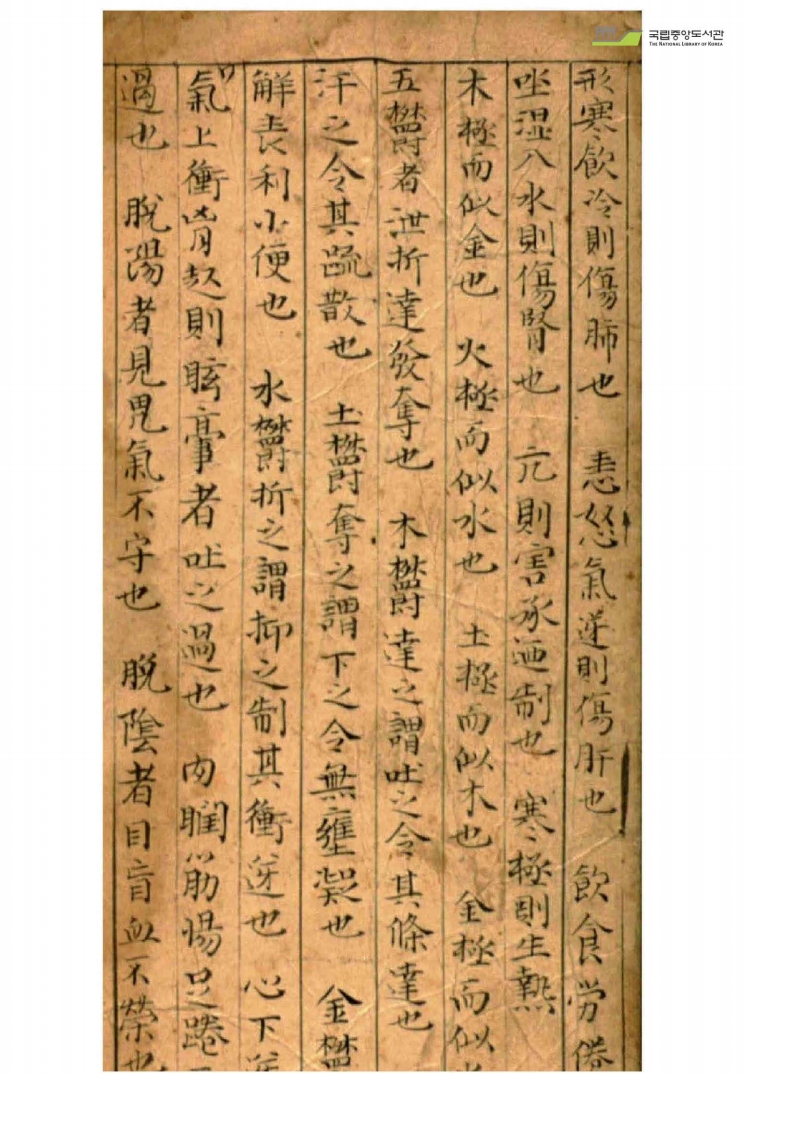 국립중앙도서관
THE NATIONAL LIBRARY OF KOREA
形寒飮冷則傷肺也 恚怒氣逆則傷肝也 飮食労倦
坐湿入水則傷腎也 亢則害承迺制也 寒極則生熱
木極而似金也 火極而似水也 土極而似木也 金極而似
五欎者泄折達發奪也 木欎達之謂吐之令其條達也
汗之令其疏散也 土欎奪之謂下之令無壅凝也 金欎
解表利小便也 水欎折之謂抑之制其衝逆也 心下逆
氣上衝胷起則眩暈者吐之過也 肉瞤筋惕足踡
過也 脫陽者見鬼氣不守也 脫陰者目盲血不榮也